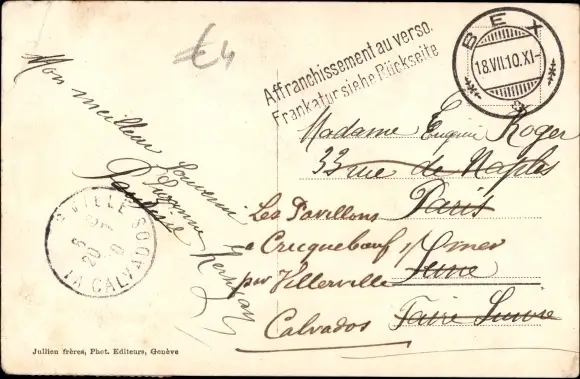 €4
Affranchissement au verso.
Frankatur siehe Rückseite
BEX
18.VII.10.XI-
Mon meilleur
Souvenir
Madame Eugène Roger
33 rue de Naples
Paris
Les Pavillons
a Cricquebœuf s/mer
par Villerville
Seine
Calvados
Faire Suivre
VILLE
CALVADOS
Jullien frères, Phot. Editeurs, Genève